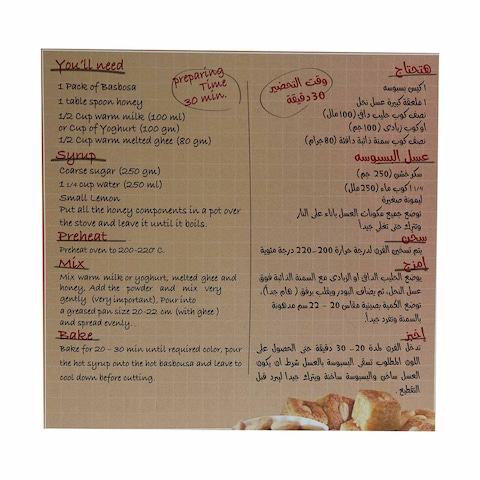 You'll need
preparing
Time
30 min.
1 Pack of Basbosa
1 table spoon honey
1/2 Cup warm milk (100 ml)
or Cup of Yoghurt (100 gm)
1/2 Cup warm melted ghee (80 gm)
Syrup
Coarse sugar (250 gm)
1 1/4 cup water (250 ml)
Small Lemon
Put all the honey components in a pot over
the stove and leave it until it boils.
Preheat
Preheat oven to 200-220° C.
Mix
Mix warm milk or yoghurt, melted ghee and
honey, Add the powder and mix very
gently (very important). Pour into
a greased pan size 20-22 cm (with ghee)
and spread evenly.
Bake
Bake for 20 - 30 min until required color, pour
the hot syrup onto the hot basbousa and leave to
cool down before cutting.
هتحتاج
وقت التحضير
30 دقيقة
1 كيس بسبوسة
1 ملعقة كبيرة عسل نحل
نصف كوب حليب دافئ (100 ملل)
أو كوب زبادى (100 جم)
نصف كوب سمنة ذائبة دافئة (80 جرام)
عسل البسبوسه
سكر خشن (250 جم)
1 1/4 كوب ماء (250 ملل)
ليمونة صغيرة
توضع جميع مكونات العسل باناء على النار
وتترك حتى تغلى جيداً
سخن
يتم تسخين الفرن لدرجة حرارة 200-220 درجة مئوية
امزج
يوضع الحليب الدافئ او الزبادى مع السمنة الذائبة فوق
عسل النحل، ثم يضاف البودر ويقلب برفق (هام جداً)،
توضع الكمية بصينية مقاس 20 - 22 سم مدهونة
بالسمنة وتفرد جيداً.
إخبز
تدخل الفرن لمدة 20 - 30 دقيقة حتى الحصول على
اللون المطلوب تسقى البسبوسة بالعسل شرط ان يكون
العسل ساخن والبسبوسة ساخنة ويترك جيدا ليبرد قبل
التقطيع.